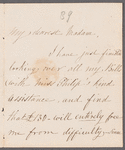 29
My dearest Madam,
I have just finished
looking over all my Bills
(with Miss Philip's kind
assistance) and find
that £130 will entirely free
me from difficulty